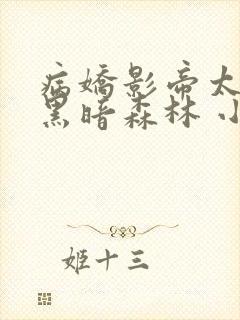 病嬌影帝太
黑暗森林 小
姬十三